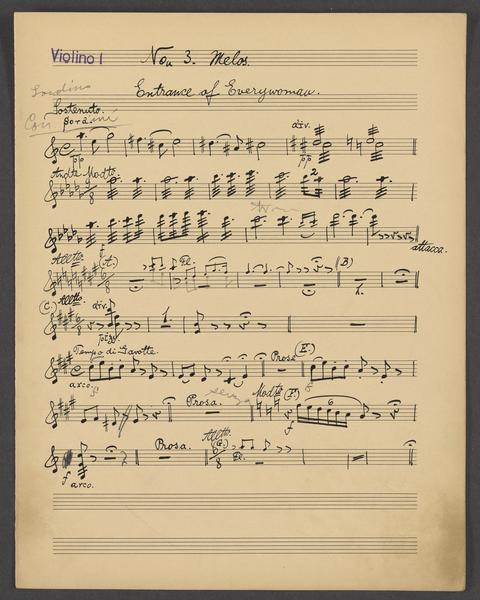 Violino I No. 3. Melos.
Entrance of Everywoman.
Sordino
Sostenuto.
Con
div.
pp pp
Andte Modto.
2
attacca.
Alltto. f (A.) (B)
1.
(C.) Alltto. div. 1.
pizz.
Tempo di Gavotte. Prosa (E.)
arco. f
Prosa. senza Modto (F.) 6
f
Prosa. Alltto. (G.)
f arco.